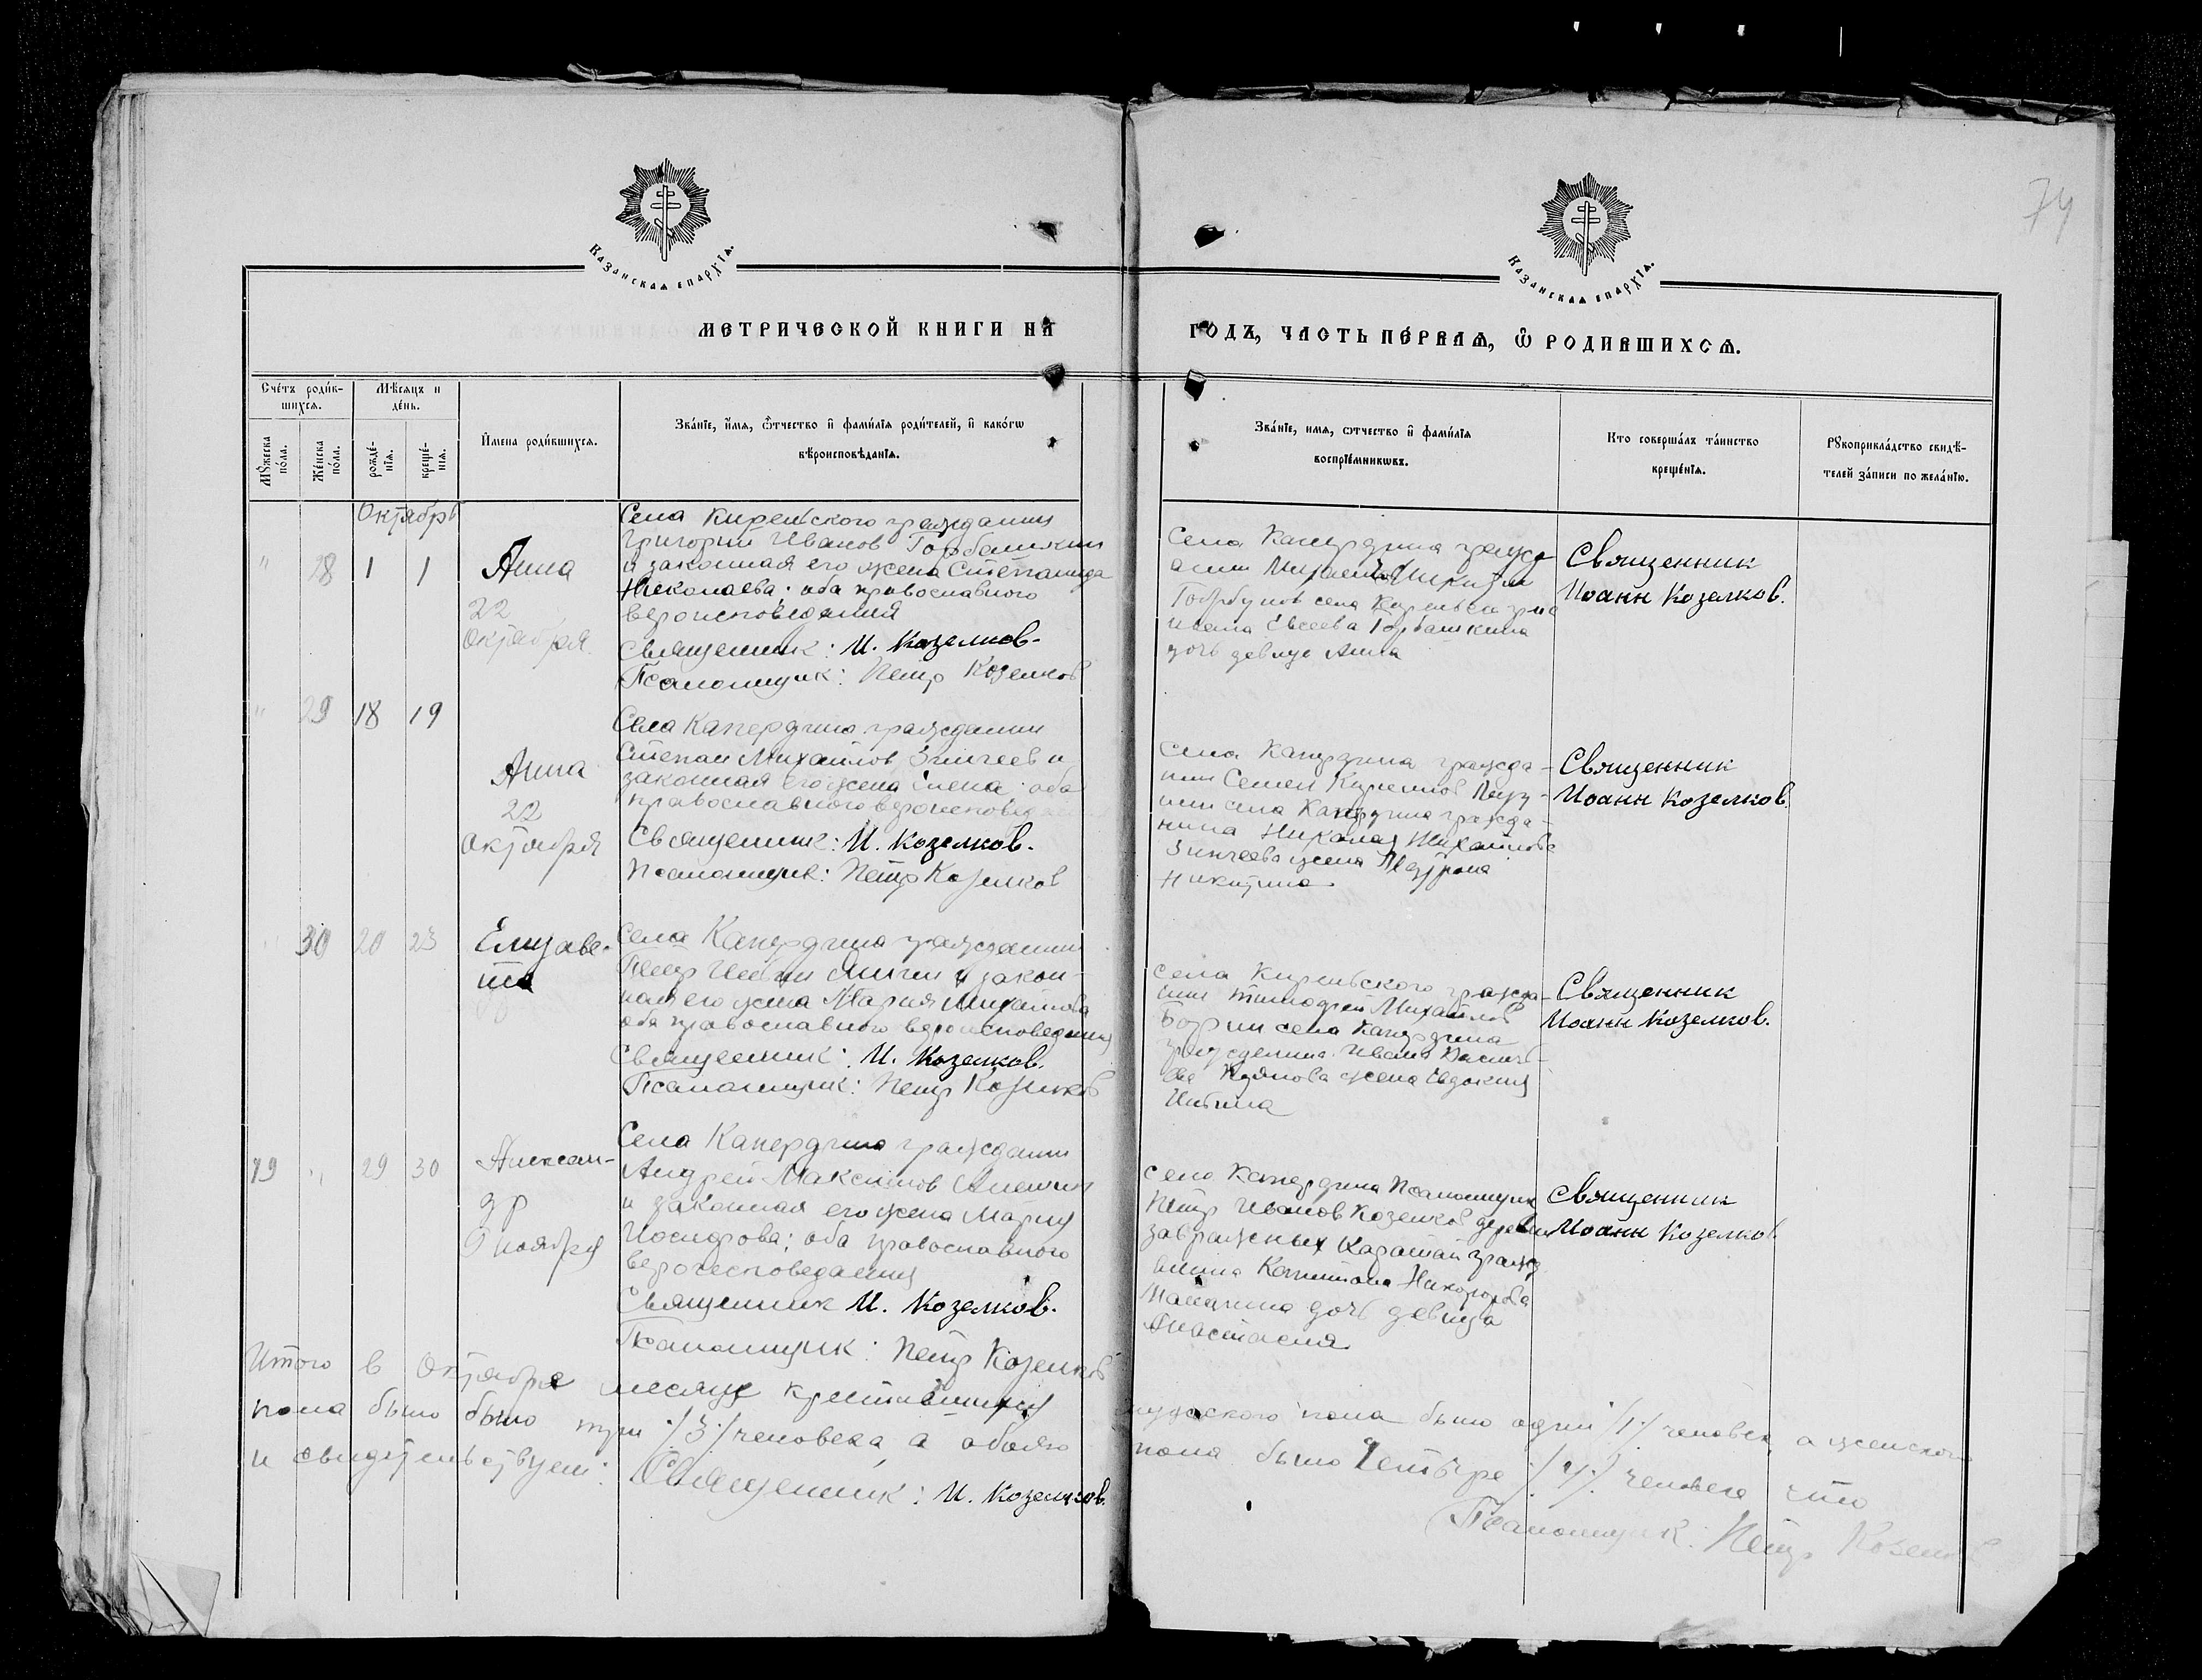 74
Казанская епархїа.
Казанская епархїа.
Метрической книги на
годъ, часть первая, ѡ родившихся.
Счетъ родив-
шихся.
Мѣсяцъ и
день.
Мужеска пола.
Женска пола.
рожде-
нїя.
креще-
нїя.
Имена родившихся.
Званїе, имя, ѿчество и фамилїя родителей, и какогѡ
вѣроисповѣданїя.
Званїе, имя, ѿчество и фамилїя
воспрїемниковъ.
Кто совершалъ таинство
крещенїя.
Рукоприкладство свидѣ-
телей записи по желанїю.
Октябрь
" 28 1 1
Анна
22
октября
Села Кирельского гражданин
Григорий Иванов Горбашкин
и законная его жена Степанида
Николаева; оба православного
вероисповедания
Священник: И. Козелков.
Псаломщик: Петр Козелков
Села Капердина гражд
анин Михаил
Горбунов села
Евсеева Горбашкина
дочь девица Анна
Священник
Иоанн Козелков.
" 29 18 19
Анна
22
октября
Села Капердино гражданин
Степан Михайлов Зинчеев и
законная его жена Елена; оба
православного вероисповед
Священник: И. Козелков.
Псаломщик: Петр Козелков
села Капердина гражда-
нин Семен
села Капердина гражда-
нина Николая Михайлова
Зинчеева жена
Никитина
Священник
Иоанн Козелков.
" 30 20 23
Елизаве-
та
Села Капердина гражданин
Петр и закон-
ная его жена Мария Михайлова
оба православного вероисповедания
Священник: И. Козелков.
Псаломщик: Петр Козелков
села Кирельского гражда-
нин Тимофей Михайлов
села Капердина
гражданина Ивана Василь-
ева жена Евдокия
Священник
Иоанн Козелков.
19 " 29 30
Алексан-
др
9 ноября
Села Капердино гражданин
Андрей Максимов Алешин
и законная его жена Мария
Иосифова; оба православного
вероисповедания
Священник И. Козелков.
Псаломщик: Петр Козелков
село Капердина Псаломщик
Петр Иванов Козелков деревни
завражных Каратай гражд
анина Капитона Никифорова
дочь девица
Анастасия
Священник
Иоанн Козелков
Итого в Октябре месяце крестившихся мужского пола было один /1/ человек а женского
пола было было три /3/ человека а обоего пола было четыре /4/ человека что
и свидетельствуем: Священник: И. Козелков.
Псаломщик: Петр Козелков